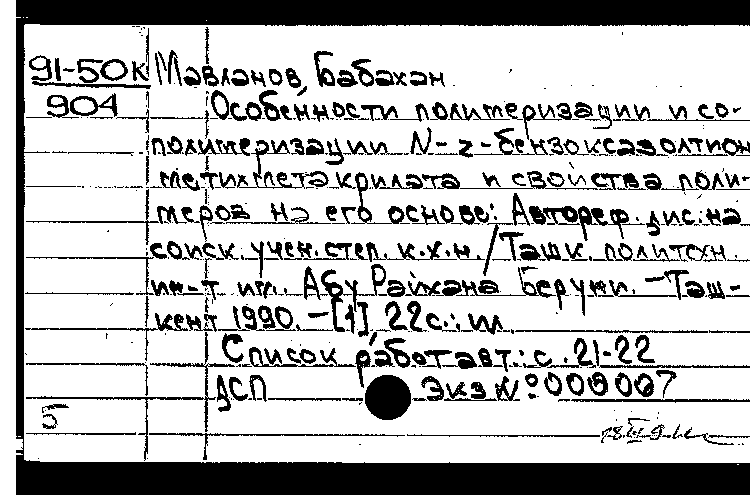 91-50к Мавланов, Бабахан
904 Особенности полимеризации и со-
полимеризации N-2-бензоксазолтион
метилметакрилата и свойства поли-
меров на его основе: Автореф. дис. на
соиск. учен. степ. к.х.н. / Ташк. политехн.
ин-т им. Абу Райхана Беруни. — Таш-
кент 1990. — [1], 22 с.: ил.
Список работ авт.: с. 21-22
ДСП Экз № 000007
5